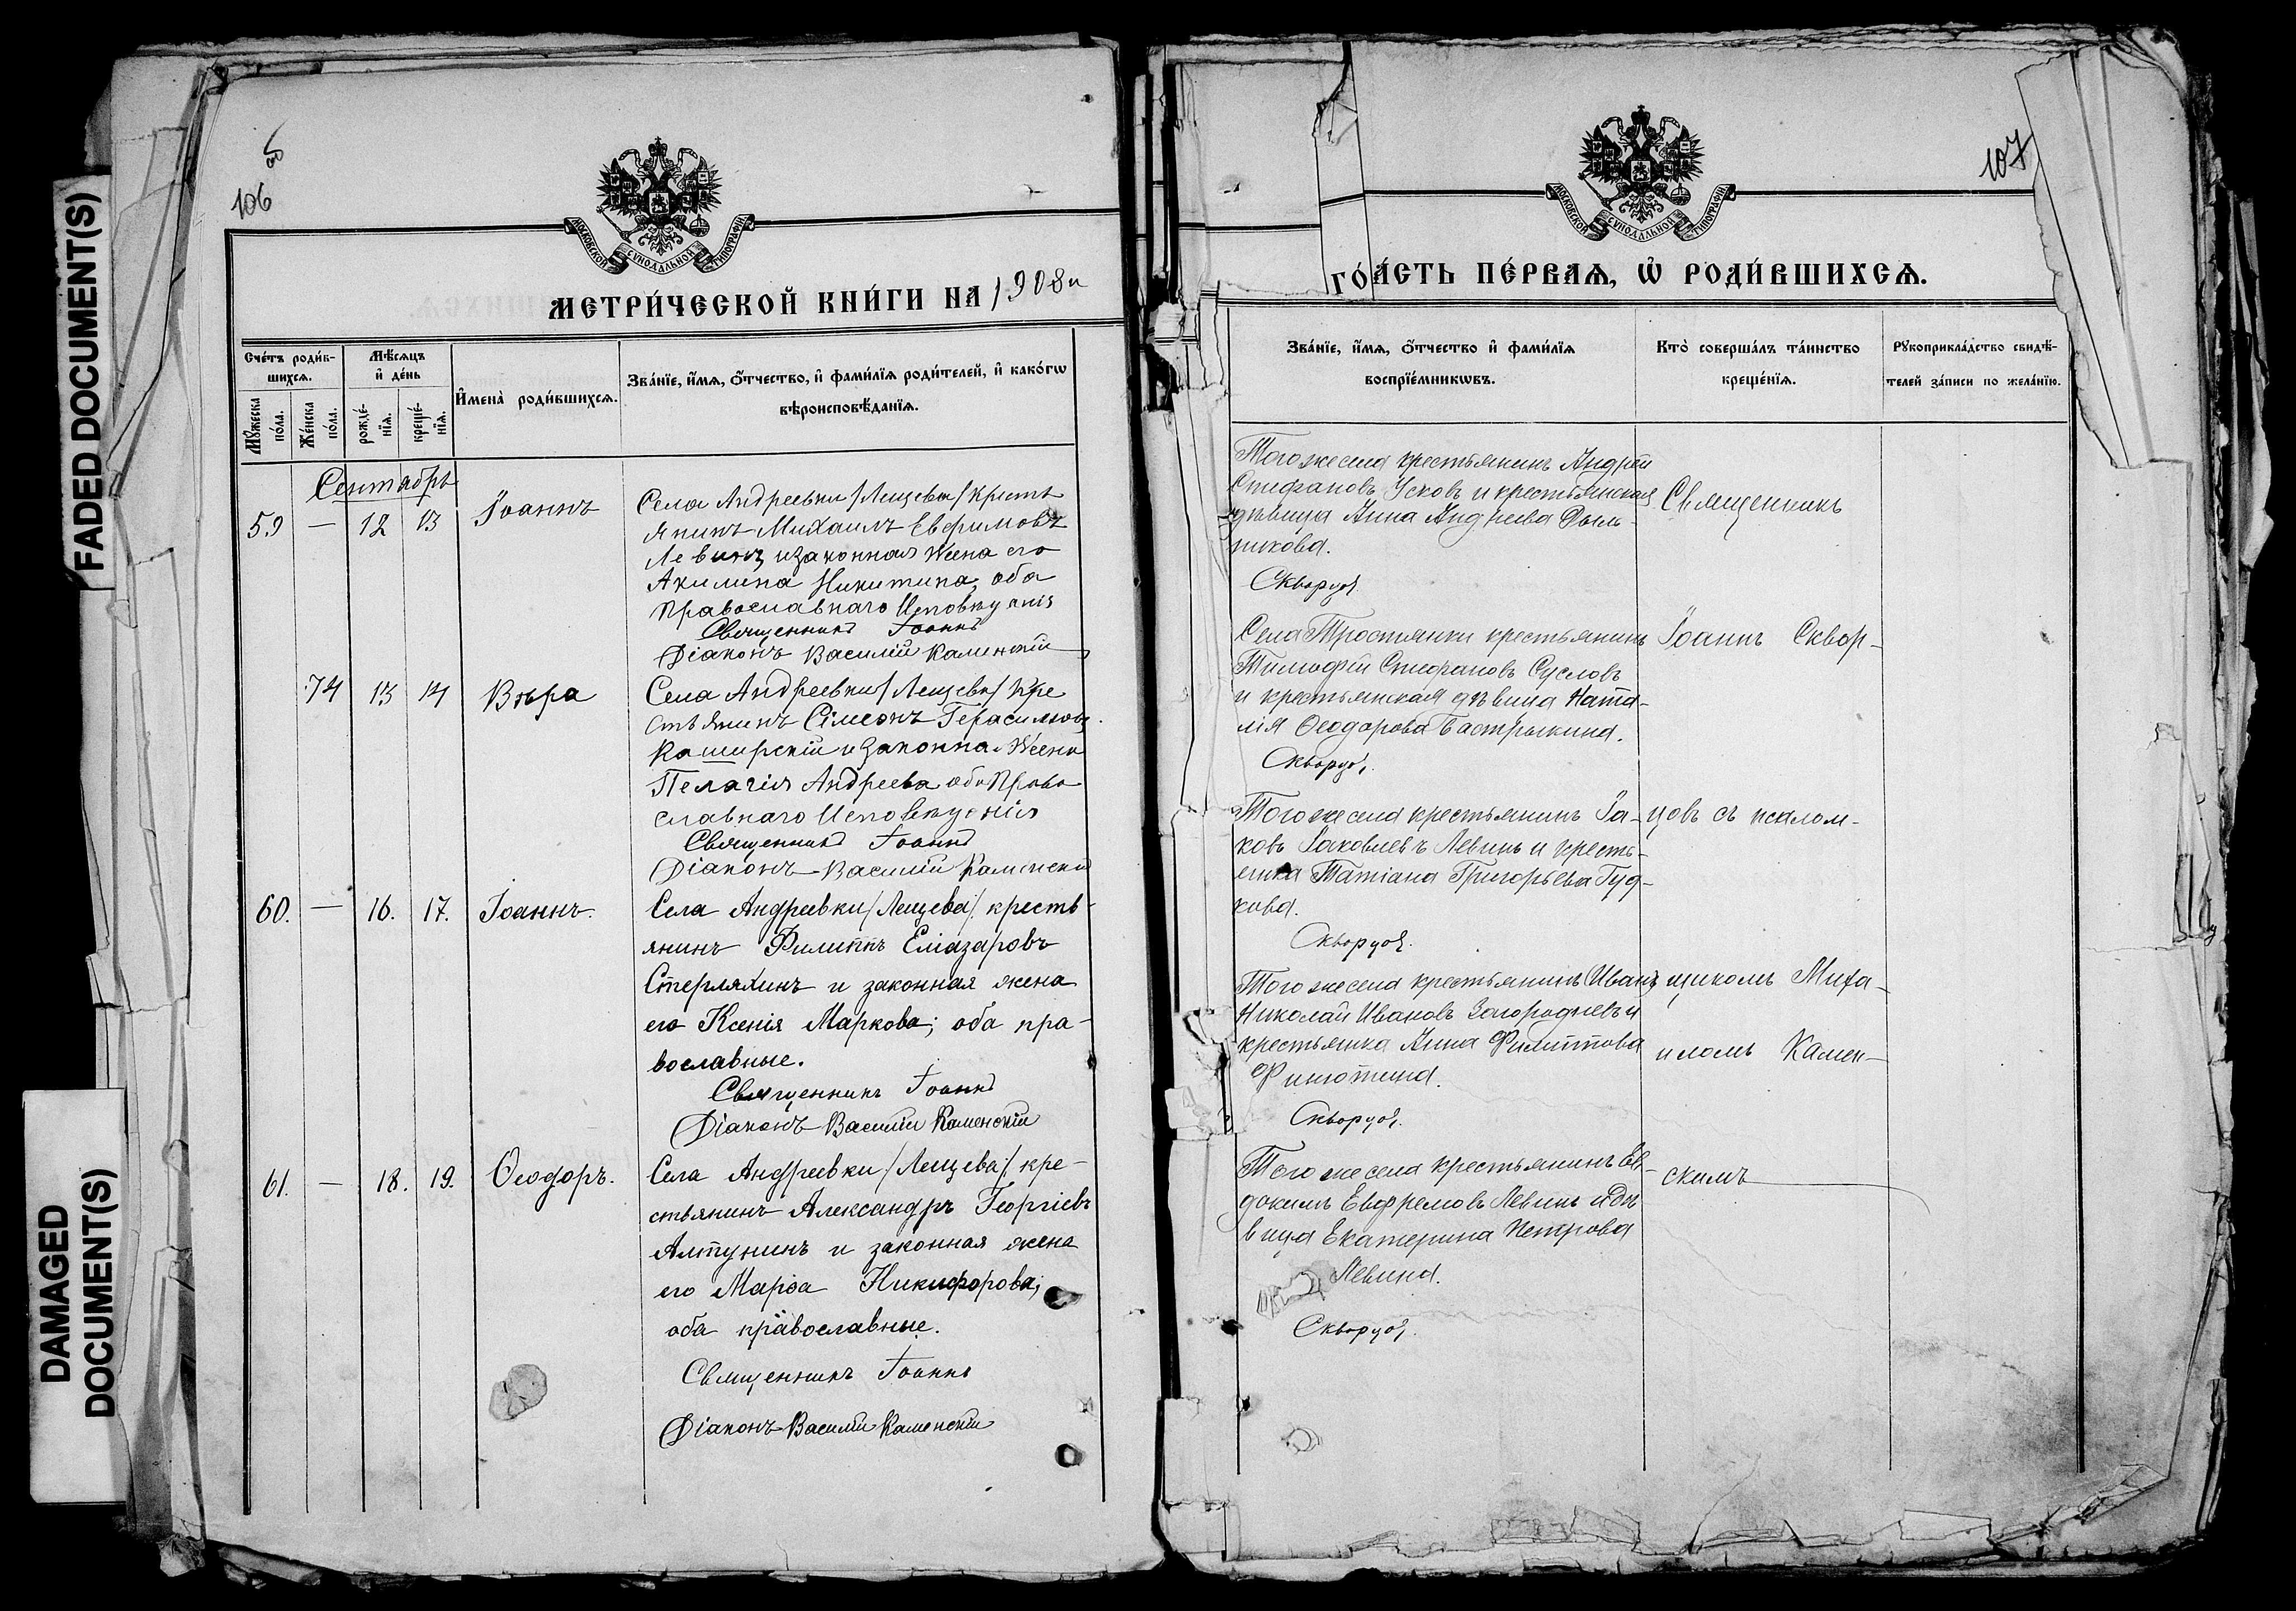 FADED DOCUMENT(S)
DAMAGED
DOCUMENT(S)
106
об
МОСКОВСКОЙ СѴНОДАЛЬНОЙ ТИПОГРАФІИ
МЕТРИ́ЧЕСКОЙ КНИ́ГИ НА 1908
Сче́тъ роди́в-
шихсѧ.
Мѣ́сѧцъ
и҆ де́нь
Мꙋ́жеска
по́ла.
Же́нска
по́ла.
рожде́-
нїѧ.
креще́-
нїѧ.
И҆мена̀ роди́вшихсѧ.
Зва́нїе, и҆́мѧ, ѻ҆́тчество, и҆ фами́лїѧ роди́телей, и҆ како́гѡ
вѣроисповѣ́данїѧ.
Сентябрь
59 — 12 13 Іоаннъ
Села Андреевки /Лещевы/ кресть
янинъ Михаилъ Евфимовъ
Левинъ и законная жена его
Акилина Никитина, оба
православнаго исповѣданія
Священникъ Іоаннъ
Діаконъ Василій Каменскій
74 13 14 Вѣра
Села Андреевки /Лещевы/ кре
стьянинъ Сімеонъ Герасимовъ
Каширскій и законная жена
Пелагія Андреева оба право
славнаго исповѣданія
Священникъ Іоаннъ
Діаконъ Василій Каменскій
60. — 16. 17. Іоаннъ.
Села Андреевки /Лещева/ кресть-
янинъ Филиппъ Елiазаровъ
Стерляхинъ и законная жена
его Ксенія Маркова; оба пра-
вославные.
Священникъ Іоаннъ
Діаконъ Василій Каменскій
61. — 18. 19. Ѳеодоръ.
Села Андреевки /Лещева/ кре-
стьянинъ Александръ Георгіевъ
Алтунинъ и законная жена
его Марѳа Никифорова;
оба православные.
Священникъ Іоаннъ
Діаконъ Василій Каменскій
107
МОСКОВСКОЙ СѴНОДАЛЬНОЙ ТИПОГРАФІИ
ГО́ А́СТЬ ПЕ́РВАѦ, Ѡ҆ РОДИ́ВШИХСѦ.
Зва́нїе, и҆́мѧ, ѻ҆́тчество и҆ фами́лїѧ
воспрїе́мникѡвъ.
Кто̀ соверша́лъ та́инство
креще́нїѧ.
Рꙋкоприкла́дство свидѣ́-
телей за́писи по жела́нїю.
Того же села крестьянинъ Андрей
Стефановъ Усковъ и крестьянская
дѣвица Анна Андреева
никова.
Скворцовъ
Села Тростянки крестьянинъ
Тимофей Стефановъ Сусловъ
и крестьянская дѣвица Ната-
лія Ѳеодорова Бастрыкина.
Скворцовъ
Того же села крестьянинъ Іа-
ковъ Іаковлевъ Левинъ и кресть-
янка Татіана Григорьева Гуд-
кова.
Скворцовъ
Того же села крестьянинъ (Иванъ
Николай Ивановъ Загородневъ и
крестьянка Анна Филиппова
Скворцовъ
Того же села крестьянинъ Ев-
докимъ Евфремовъ Левинъ и дѣ
вица Екатерина Петрова
Левина.
Скворцовъ
Священникъ
Іоаннъ Сквор-
цовъ съ псалом-
щикомъ Миха-
иломъ Камен-
скимъ